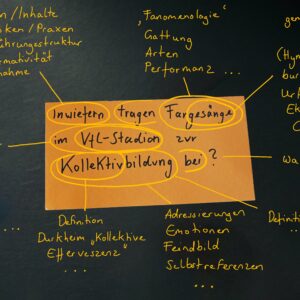 en / Inhalte
ken / Praxen
führungsstruktur
rmativität
nahme
"Fanomenologie"
Gattung
Arten
Performanz ...
(Hym
Inwiefern tragen Fangesänge
im VfL-Stadion zur
Kollektivbildung bei?
wa
...
Definition
Durkheim "Kollektive
Efferveszenz"
...
Adressierungen
Emotionen
Feindbild
Selbstreferenzen
...
Definiti
...